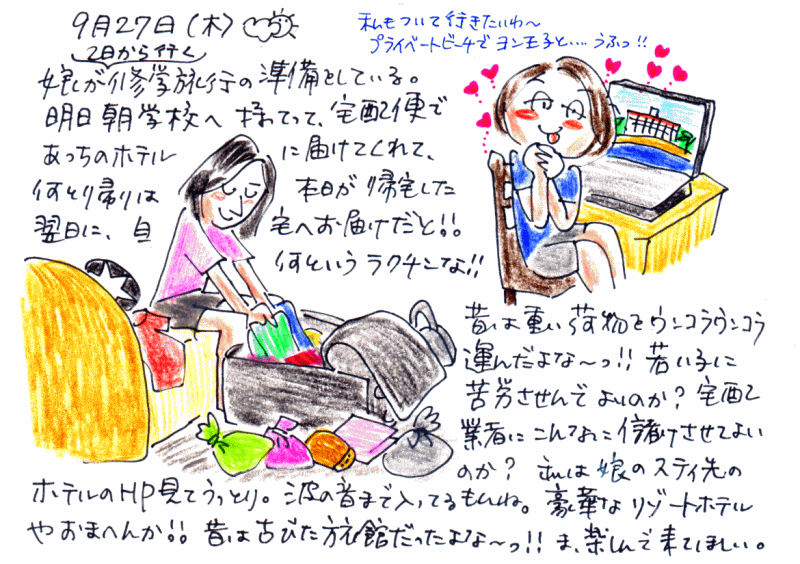 9月27日（木）
2日から行く
私もついて行きたいわ〜
プライベートビーチでヨン王子と…うふっ!!
娘が修学旅行の準備をしている。
明日朝学校へ持ってって、宅配便で
あっちのホテルに届けてくれて、
何より帰りは本日が帰宅した
翌日に、自宅へお届けだと!!
何というラクチンな!!
昔は重い荷物をウンコラウンコラ
運んだよな〜っ!!若い子に
苦労させんでよいのか?宅配
業者にこんなに儲けさせてよい
のか?きんは娘のステイ先の
ホテルのHP見てうっとり。波の音まで入ってるもんね。豪華なリゾートホテル
やおまへんか!!昔は古びた旅館だったよな〜っ!!ま、楽しんで来てほしい。